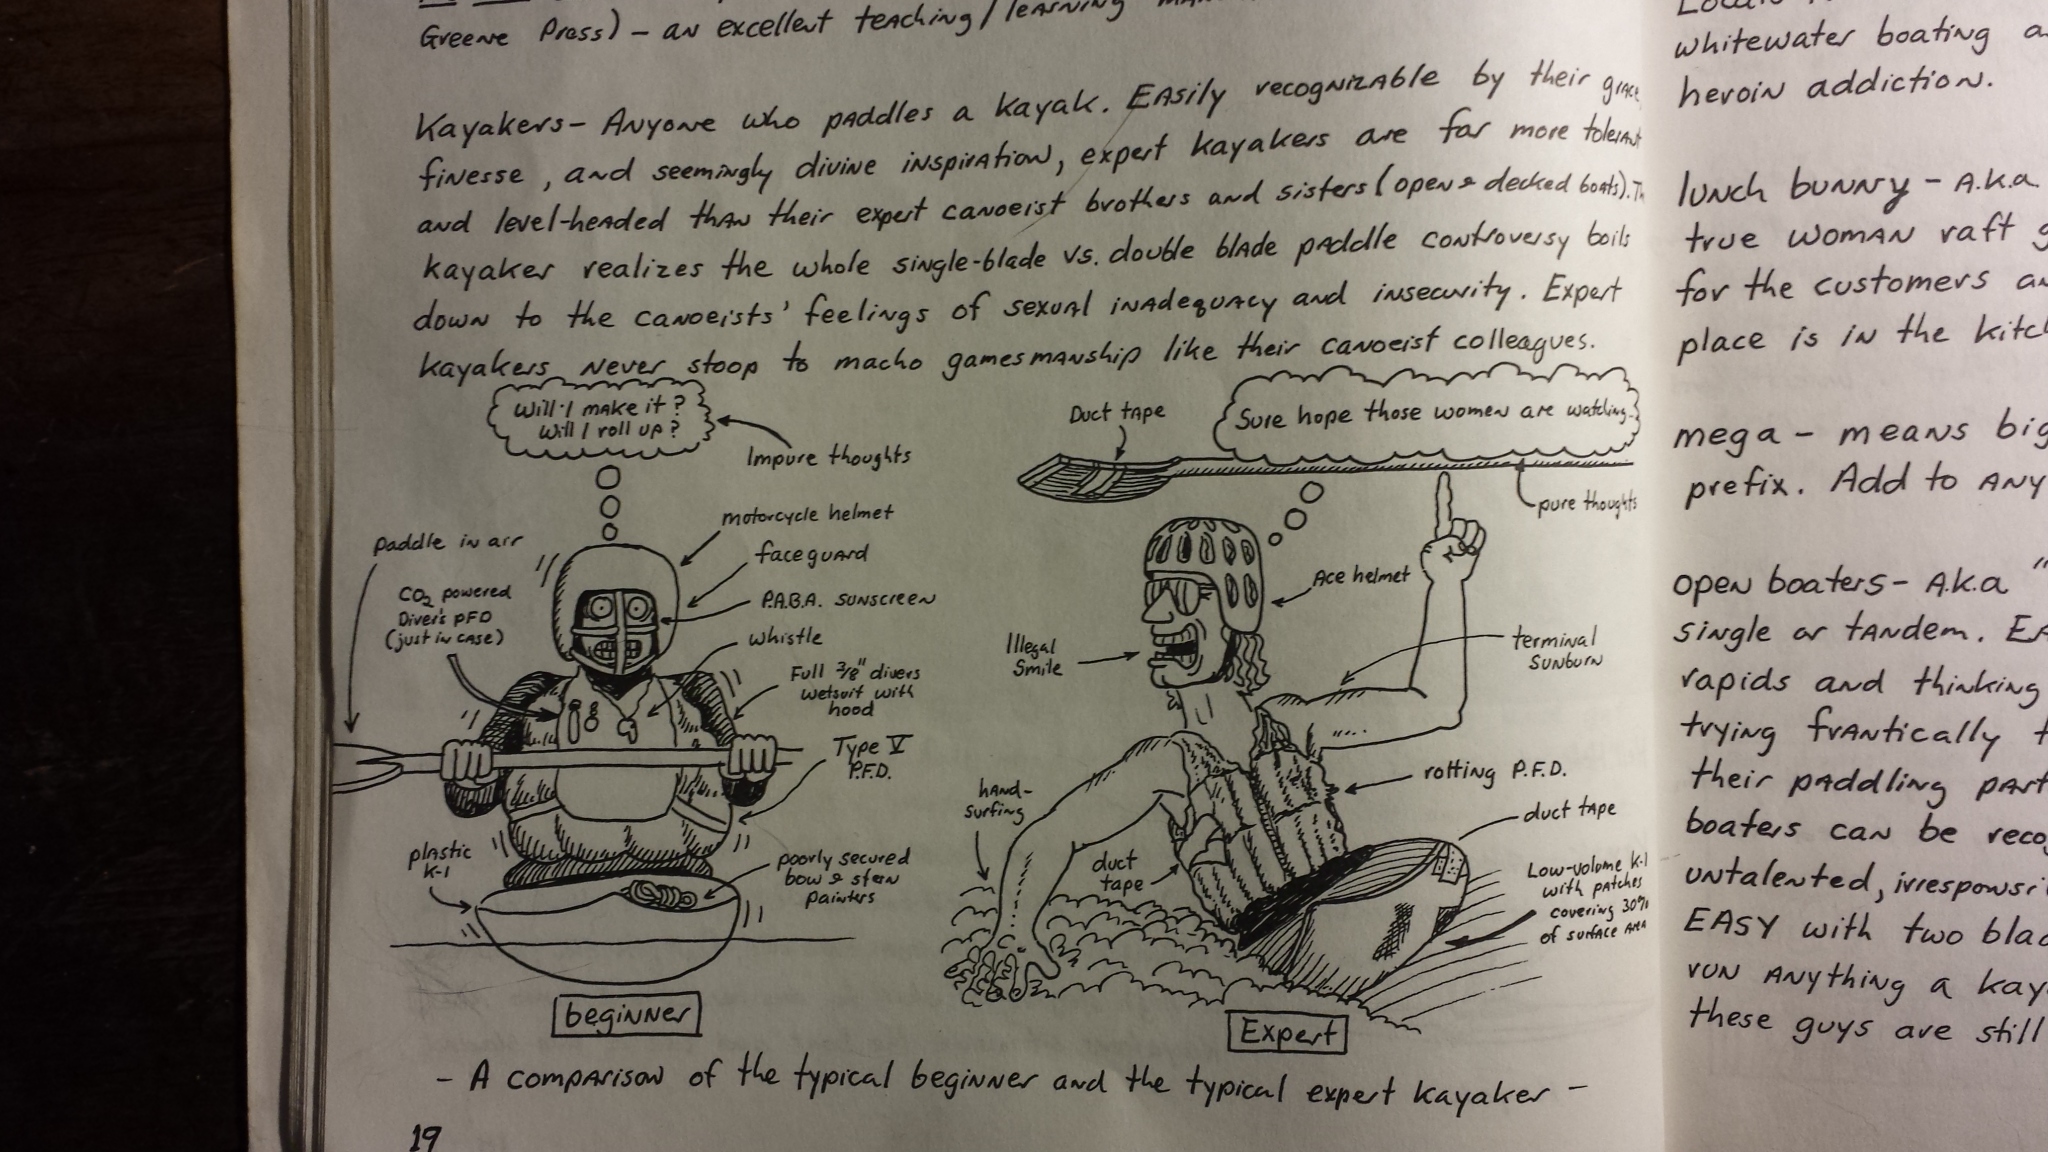 Greene Press) - an excellent teaching/learning
Kayakers- Anyone who paddles a kayak. Easily recognizable by their grace,
finesse, and seemingly divine inspiration, expert kayakers are far more tolerant
and level-headed than their expert canoeist brothers and sisters (open & decked boats).
kayaker realizes the whole single-blade vs. double blade paddle controversy boils
down to the canoeists' feelings of sexual inadequacy and insecurity. Expert
kayakers never stoop to macho gamesmanship like their canoeist colleagues.
Will I make it?
Will I roll up?
Impure thoughts
motorcycle helmet
face guard
P.A.B.A. sunscreen
whistle
Full 3/8" divers
wetsuit with
hood
Type V
P.F.D.
poorly secured
bow & stern
painters
paddle in air
CO2 powered
Diver's PFD
(just in case)
plastic
K-1
beginner
Duct tape
Sure hope those women are watching.
pure thoughts
Ace helmet
Illegal
Smile
terminal
sunburn
rotting P.F.D.
hand-
surfing
duct tape
duct
tape
Low-volume K-1
with patches
covering 30%
of surface area
Expert
- A comparison of the typical beginner and the typical expert kayaker -
19
whitewater boating
heroin addiction.
lunch bunny - A.k.a.
true woman raft
for the customers
place is in the
mega - means big
prefix. Add to any
open boaters- A.k.a "
single or tandem.
rapids and thinking
trying frantically
their paddling
boaters can be
untalented,
EASY with two
run anything a
these guys are still